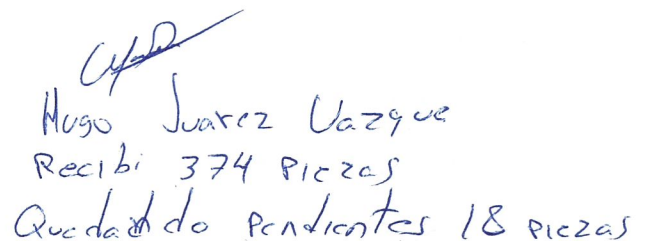 Hugo Juarez Vazque
Recibi 374 Piezas
Quedando Pendientes 18 Piezas